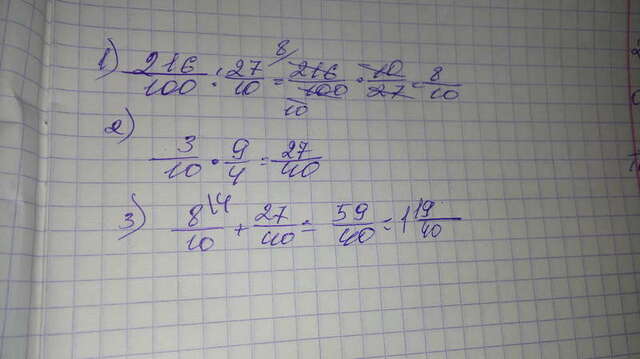 1) 216/100 : 27/10 = 216/100 · 10/27 = 8/10
8
10
2)
3/10 · 9/4 = 27/40
3) 8\4/10 + 27/40 = 59/40 = 1 19/40